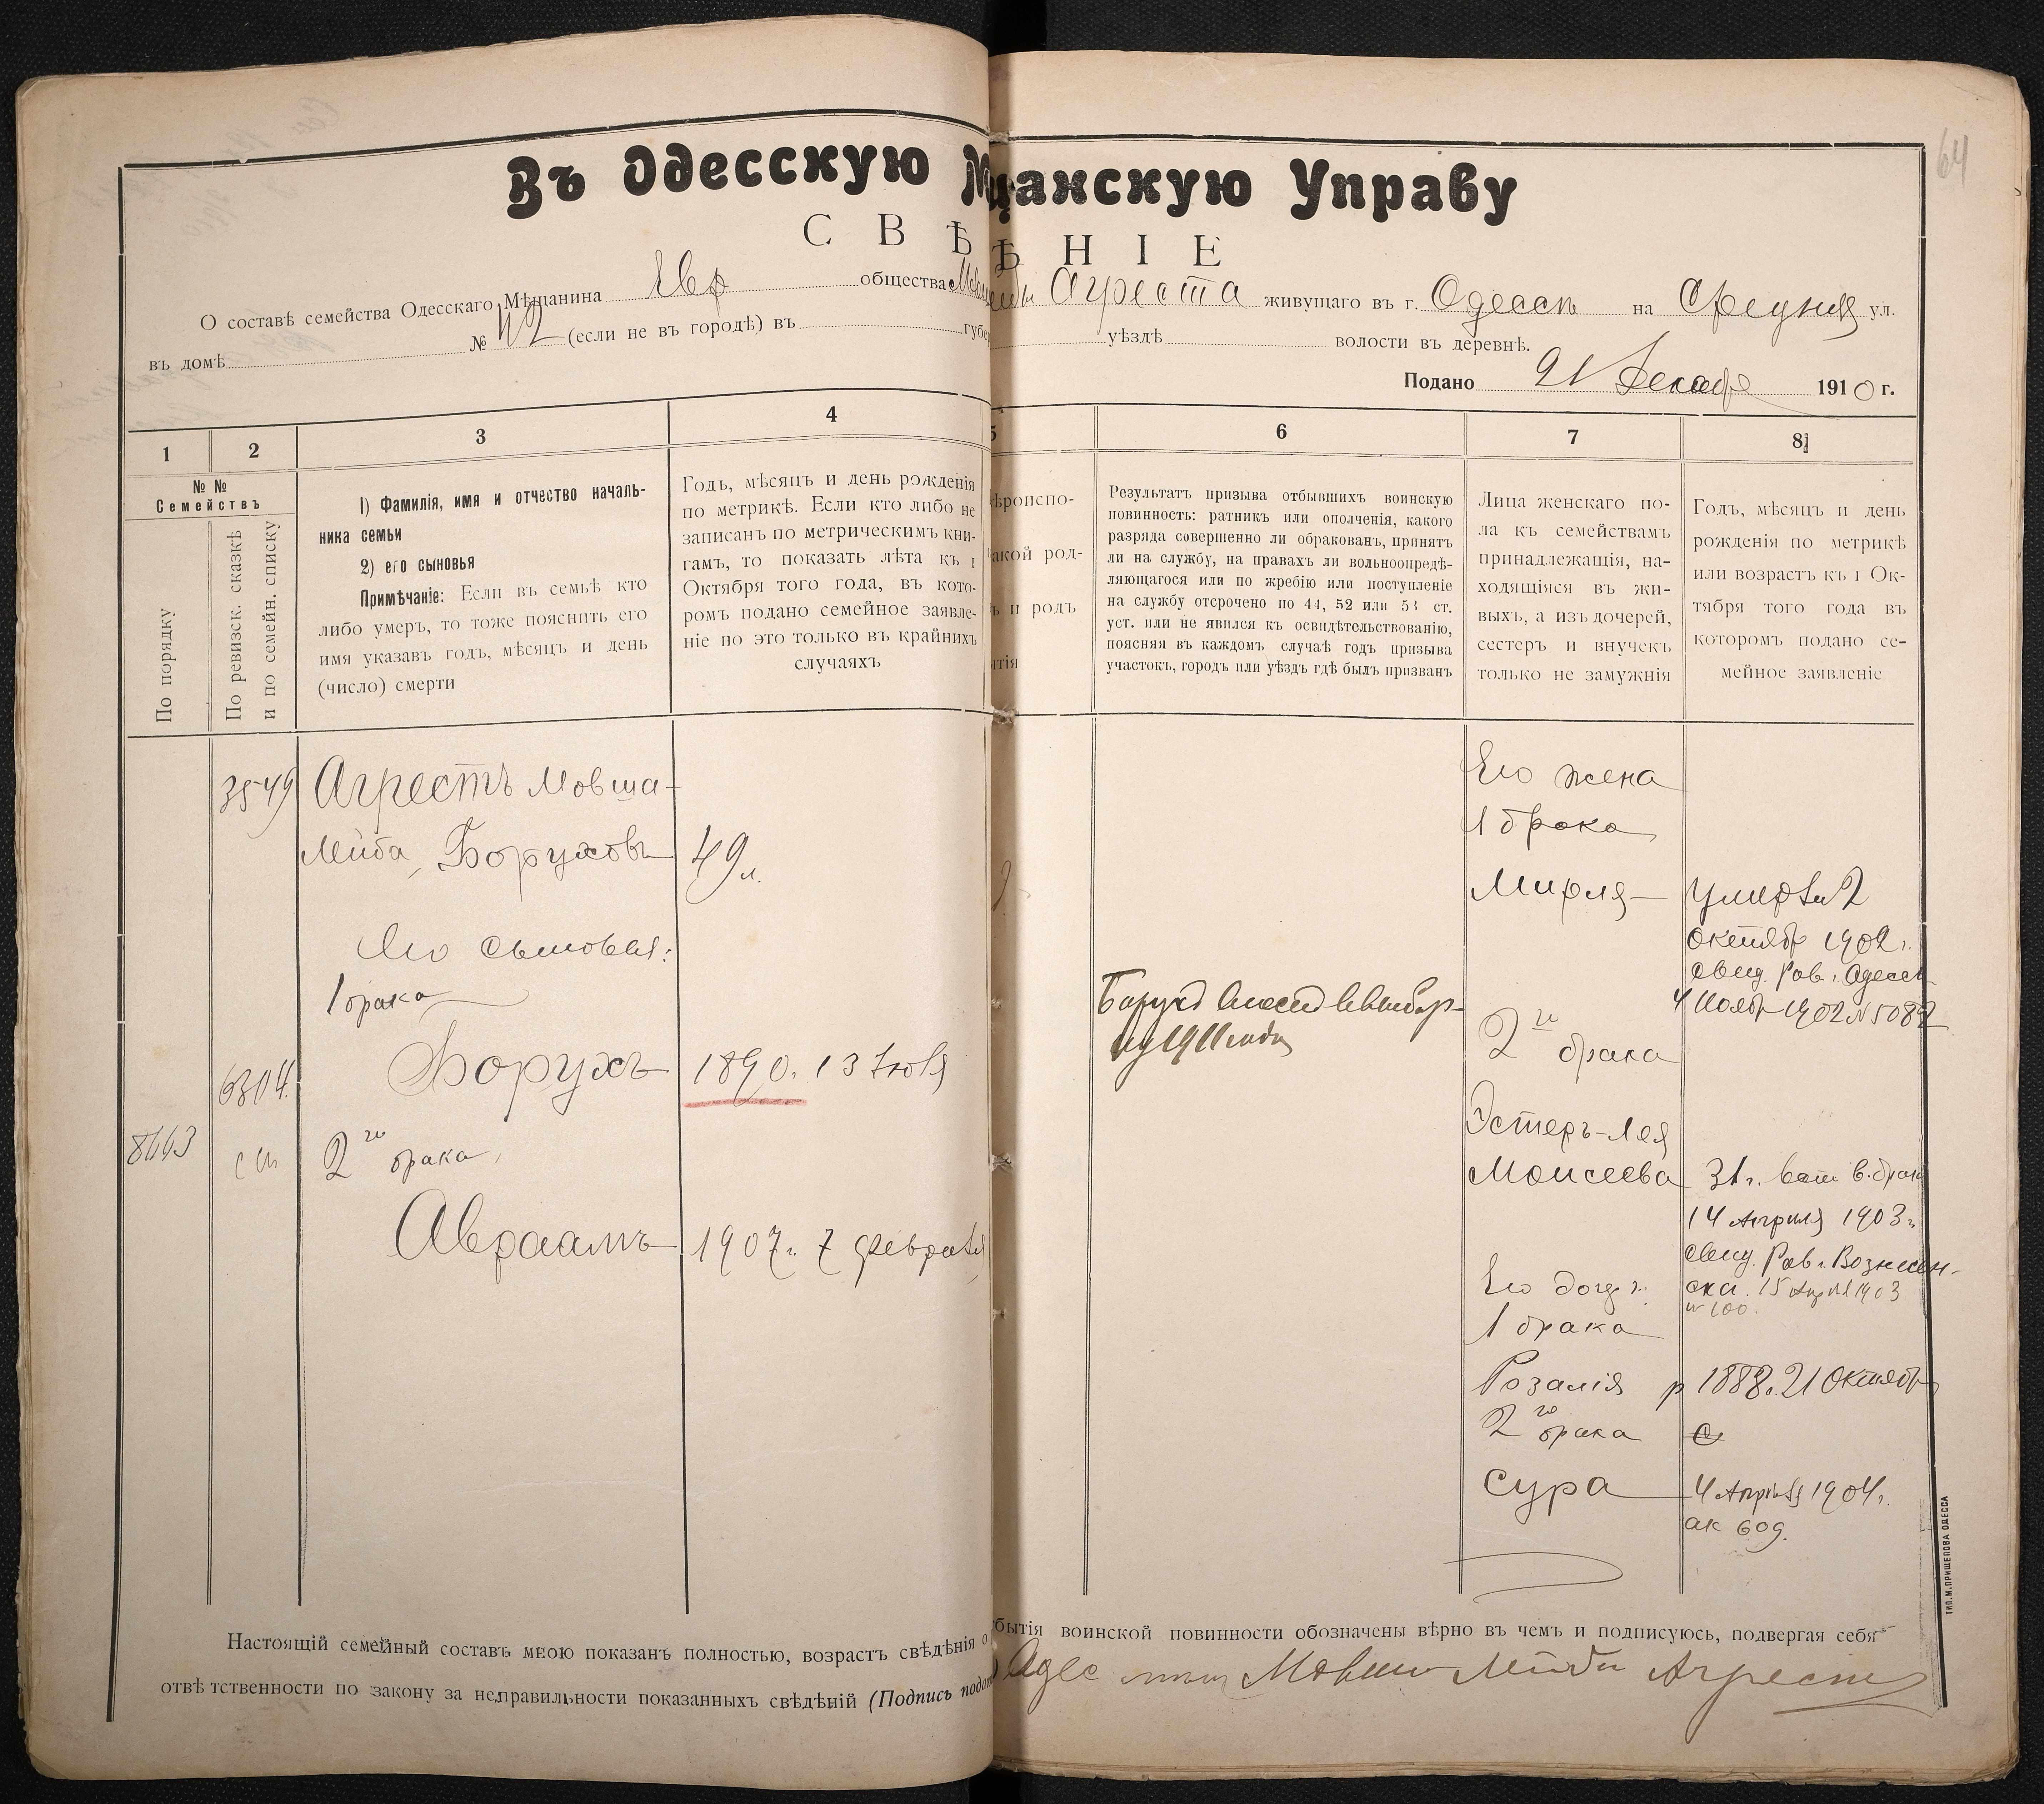 64
Въ Одесскую М щанскую Управу
СВѢ ѢНІЕ
О составѣ семейства Одесскаго Мѣщанина Евр общества Мовши Лейбы Агреста живущаго въ г. Одессѣ на Средняя ул.
въ домѣ № 42 (если не въ городѣ) въ губер уѣздѣ волости въ деревнѣ.
Подано 21 Декабр 1910 г.
1
2
3
4
5
6
7
8
№ №
Семействъ
По порядку
По ревизск. сказкѣ
и по семейн. списку
1) Фамилія, имя и отчество началь-
ника семьи
2) его сыновья
Примѣчаніе: Если въ семьѣ кто
либо умеръ, то тоже пояснить его
имя указавъ годъ, мѣсяцъ и день
(число) смерти
Годъ, мѣсяцъ и день рожденія
по метрикѣ. Если кто либо не
записанъ по метрическимъ кни-
гамъ, то показать лѣта къ 1
Октября того года, въ кото-
ромъ подано семейное заявле-
ніе но это только въ крайнихъ
случаяхъ
ѣроиспо-
акой род-
ъ и родъ
тія
Результатъ призыва отбывшихъ воинскую
повинность: ратникъ или ополченія, какого
разряда совершенно ли обракованъ, принятъ
ли на службу, на правахъ ли вольноопредѣ-
ляющагося или по жребію или поступленіе
на службу отсрочено по 44, 52 или 53 ст.
уст. или не явился къ освидѣтельствованію,
поясняя въ каждомъ случаѣ годъ призыва
участокъ, городъ или уѣздъ гдѣ былъ призванъ
Лица женскаго по-
ла къ семействамъ
принадлежащія, на-
ходящіяся въ жи-
выхъ, а изъ дочерей,
сестеръ и внучекъ
только не замужнія
Годъ, мѣсяцъ и день
рожденія по метрикѣ
или возрастъ къ 1 Ок-
тября того года въ
которомъ подано се-
мейное заявленіе
3549
Агрестъ Мовша-
Лейба Боруховъ
49 л.
Его сыновья:
1 брака
6304
Борухъ
1890. 13 Іюля
8663
сп
2го брака
Авраамъ
1907 г. 7 февраля
Борухъ внесенъ в
1911 года
Его жена
1 брака
Мирля
умерла 2
октябр 1902 г.
свид. Рав. Одессы
4 Нояб 1902 № 5082
2го брака
Эстеръ-Лея
Моисеева
31 г. в. брак
14 Апреля 1903 г.
свид. Рав. г. Вознесен-
ска. 15 Апреля 1903
№ 100.
Его доч.
1 брака
Розалія
р 1888. 21 Октябр
2го брака
Сура
4 Апреля 1904 г.
ак 609.
Настоящій семейный составъ мною показанъ полностью, возрастъ свѣдѣнія о бытія воинской повинности обозначены вѣрно въ чемъ и подписуюсь, подвергая себя
отвѣтственности по закону за неправильности показанныхъ свѣдѣній (Подпись подав Одес мѣщ Мовша Лейба Агрестъ
ТИП. М. ПРИЩЕПОВА ОДЕССА